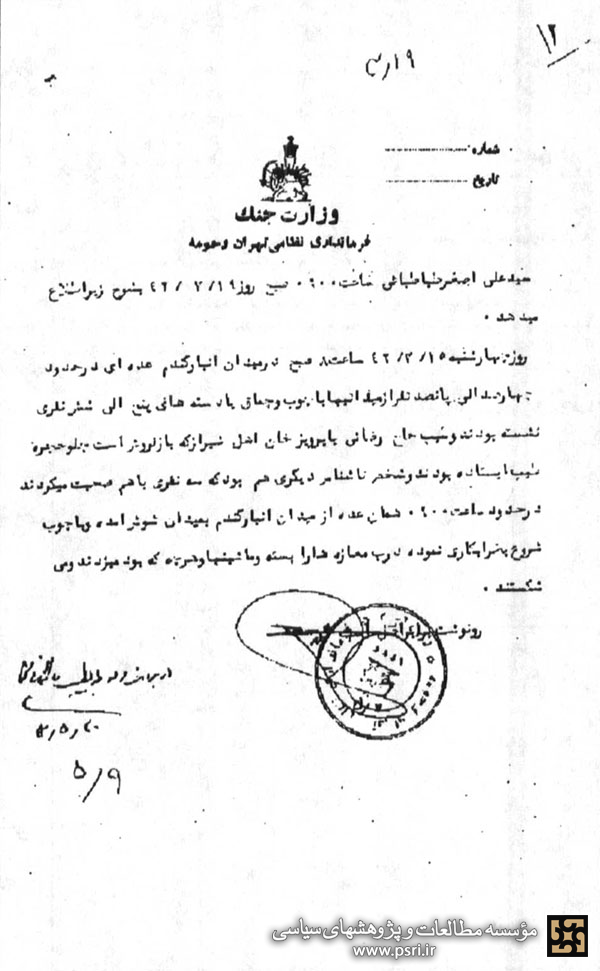 ۱۲
۱۹ر۳
شماره
تاریخ
وزارت جنگ
فرمانداری نظامی تهران و حومه
سید علی اصغر طباطبائی ساعت ۰۹۰۰ صبح روز ۴۲/۳/۱۹ بشرح زیر اطلاع
میدهد .
روز چهارشنبه ۴۲/۳/۱۵ ساعت ۸ صبح در میدان انبار گندم عده ای در حدود
چهارصد الی پانصد نفر از میدانیها با چوب و چماق با دسته های پنج الی شش نفری
نشسته بودند و طیب حاج رضائی با پرویز خان اهل شیراز که بارفروش است جلو حجره
طیب ایستاده بودند و شخص ناشناس دیگری هم بود که سه نفری با هم صحبت میکردند
در حدود ساعت ۰۹۰۰ همان عده از میدان انبار گندم بمیدان شوش آمده و با چوب
شروع بخرابکاری نموده درب مغازه ها را بسته و ماشینها و هرچه که بود میزدند و می
شکستند .
رونوشت برابر اصل است
۵/۹
مؤسسه مطالعات و پژوهشهای سیاسی
www.psri.ir